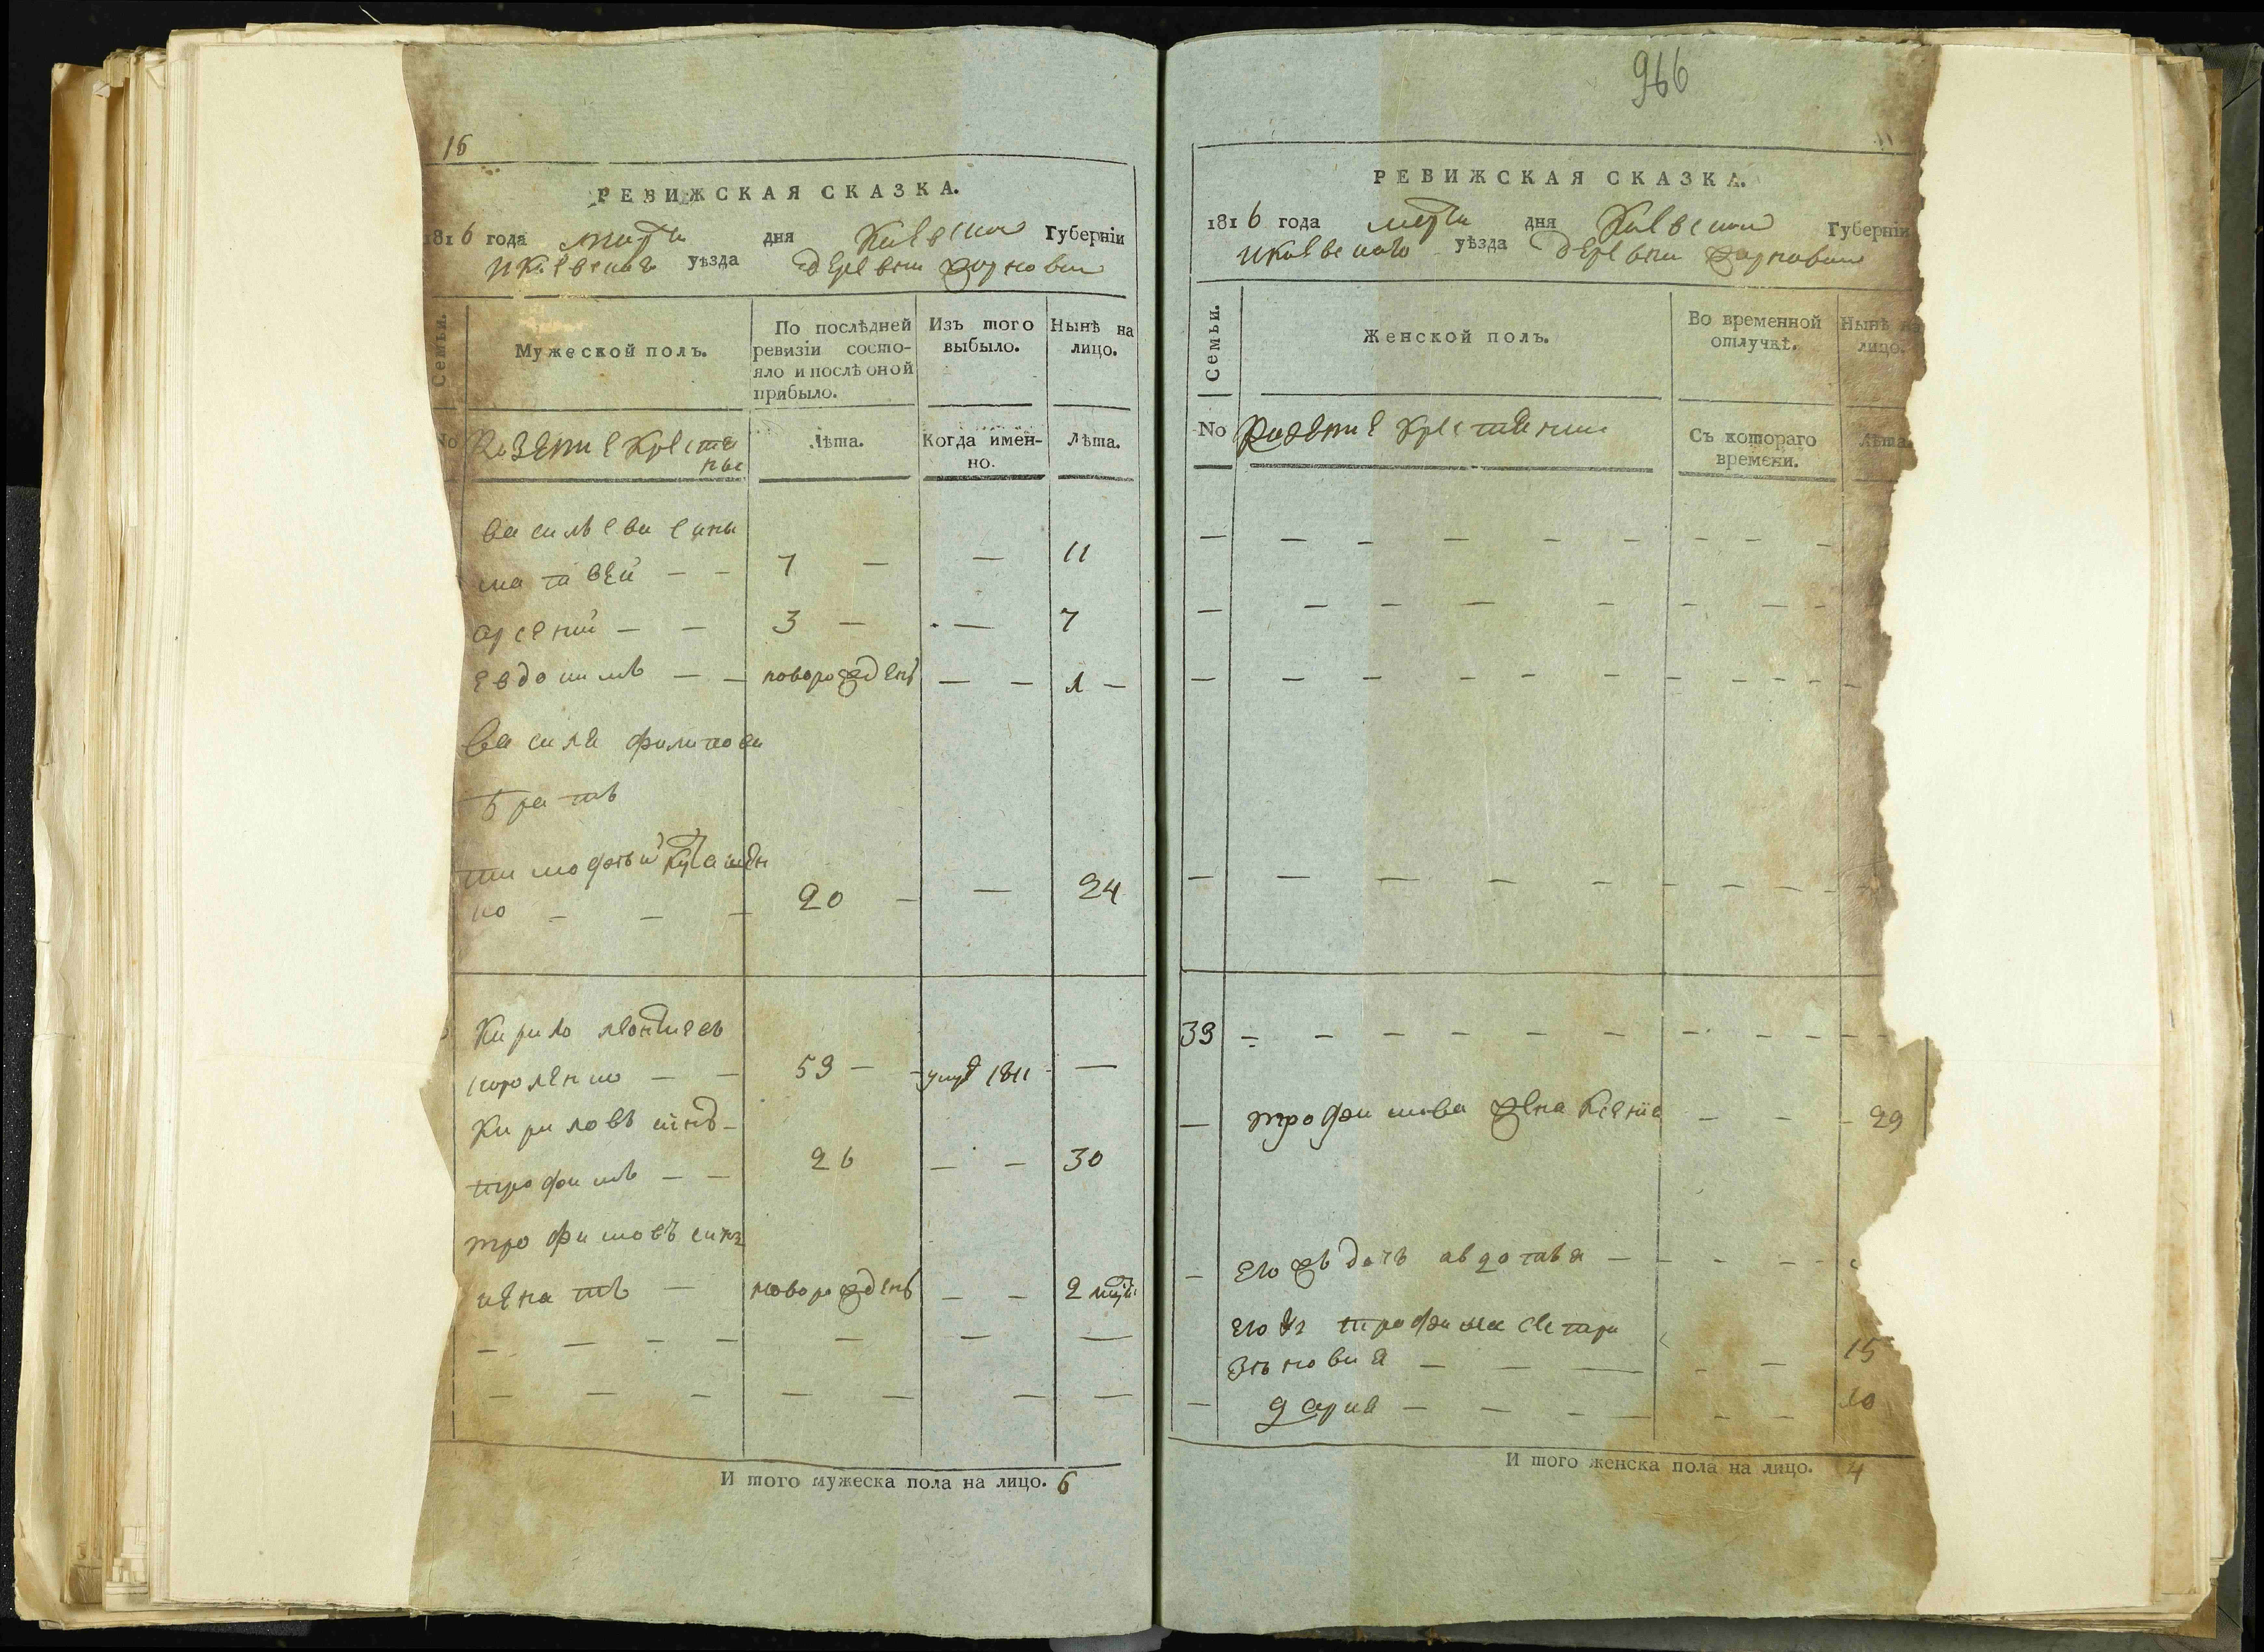 16
РЕВИЖСКАЯ СКАЗКА.
1816 года марта дня Киевской Губерніи
и Киевского уѣзда деревни Жорновки
Семьи.
Мужеской полъ.
По послѣдней ревизіи состо-
яло и послѣ оной
прибыло.
Изъ того
выбыло.
Нынѣ на
лицо.
No
Казение крестя
ние
Лѣта.
Когда имен-
но.
Лѣта.
василѣеви сины
матвей — — 7 — — 11
арсений — — 3 — — 7
евдокимъ — — новорожденъ — — 1 —
василя филипова
братъ
тимофѣй
ко — — — 20 — — 24
Кирило леонтиевъ
короленко — — 59 — умре 1811 —
Кириловъ синъ —
трофимъ — — 26 — — 30
трофимовъ синъ
игнатъ — новорожденъ — — 2
— — — — — — —
— — — — — — —
И того мужеска пола на лицо. 6
966
РЕВИЖСКАЯ СКАЗКА.
1816 года марта дня Киевской Губерніи
и Киевского уѣзда деревни Жорновки
Семьи.
Женской полъ.
Во временной
отлучкѣ.
Нынѣ на
лицо.
No
Казение крестянки
Съ котораго
времени.
Лѣта.
— — — — — — — — —
— — — — — — — — —
— — — — — — — — —
— — — — — — — — —
39 — — — — — — — — —
— трофимова жена Ксения — — — 29
— его жъ дочъ авдотья — — — — —
его жъ трофима сестри
зѣновия — — — — — 15
— дария — — — — — — 10
И того женска пола на лицо. 4